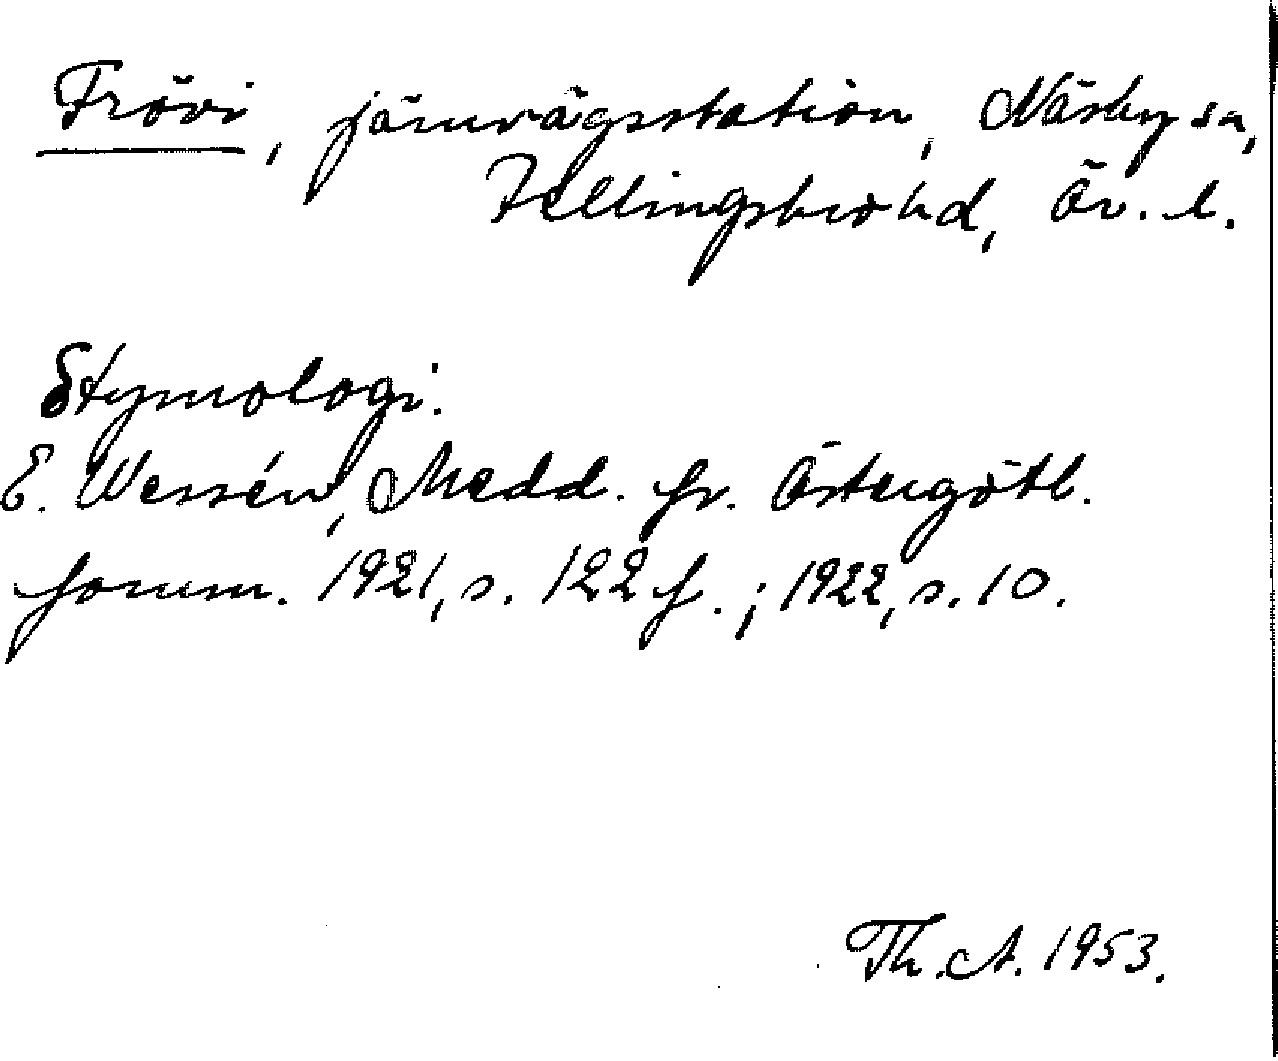 Frövi, järnvägsstation, Näsby sn,
Fellingsbro hd, Ör. l.
Etymologi.
E. Wessén, Medd. fr. Östergötl.
fornm. 1921, s. 122 f.; 1922, s. 10.
Th. A. 1953.